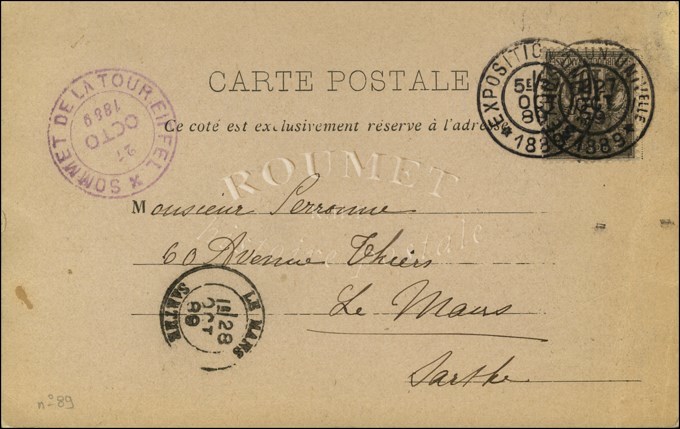 CARTE POSTALE
Ce coté est exclusivement réservé à l'adresse
EXPOSITION UNIVERSELLE
1889 1889
SOMMET DE LA TOUR EIFFEL
27
OCTO
1889
ROUMET
Monsieur Perronne
60 Avenue Thiers
Le Mans
Sarthe
LE MANS
SARTHE
28
OCT
89
n° 89